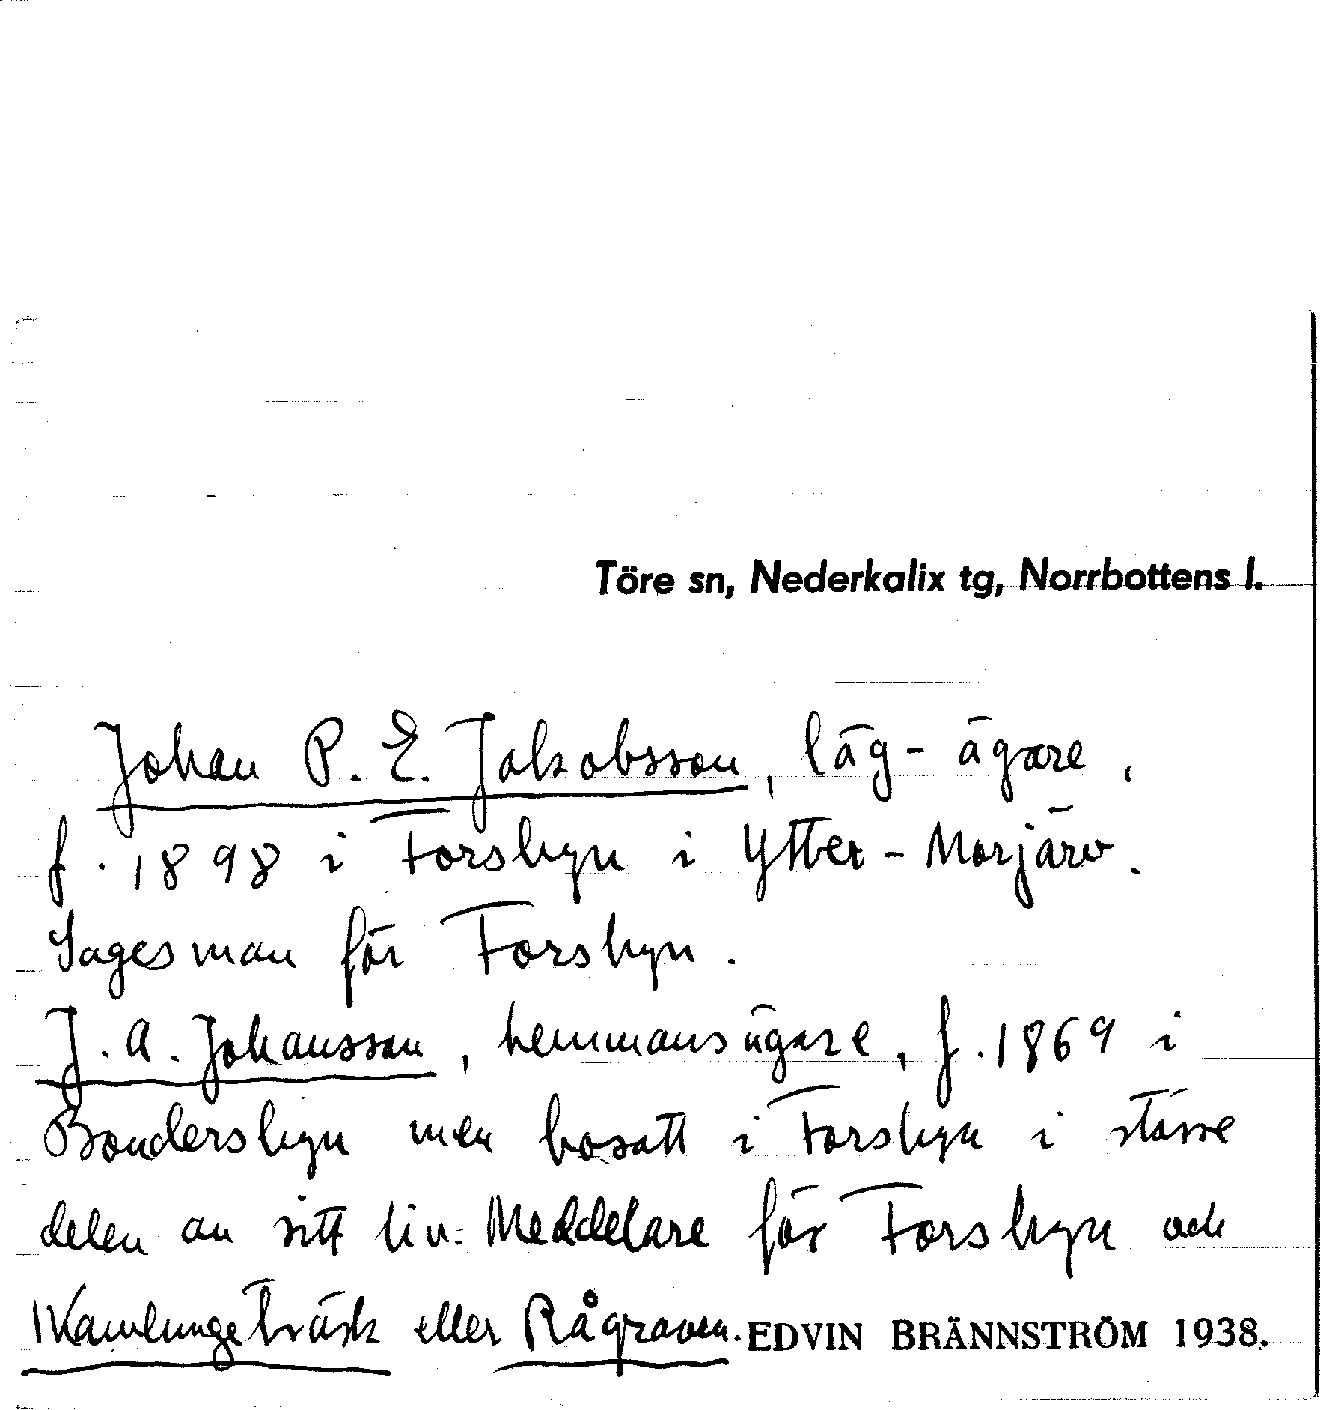 Töre sn, Nederkalix tg, Norrbottens l.
Johan P. E. Jakobsson, läg-ägare,
f. 1898 i Forsbyn i Ytter-Morjärv.
Sagesman för Forsbyn.
J. A. Johansson, hemmansägare, f. 1869 i
Bondersbyn men bosatt i Forsbyn i större
delen av sitt liv. Meddelare för Forsbyn och
Kamlungeträsk eller Rågraven. EDVIN BRÄNNSTRÖM 1938.